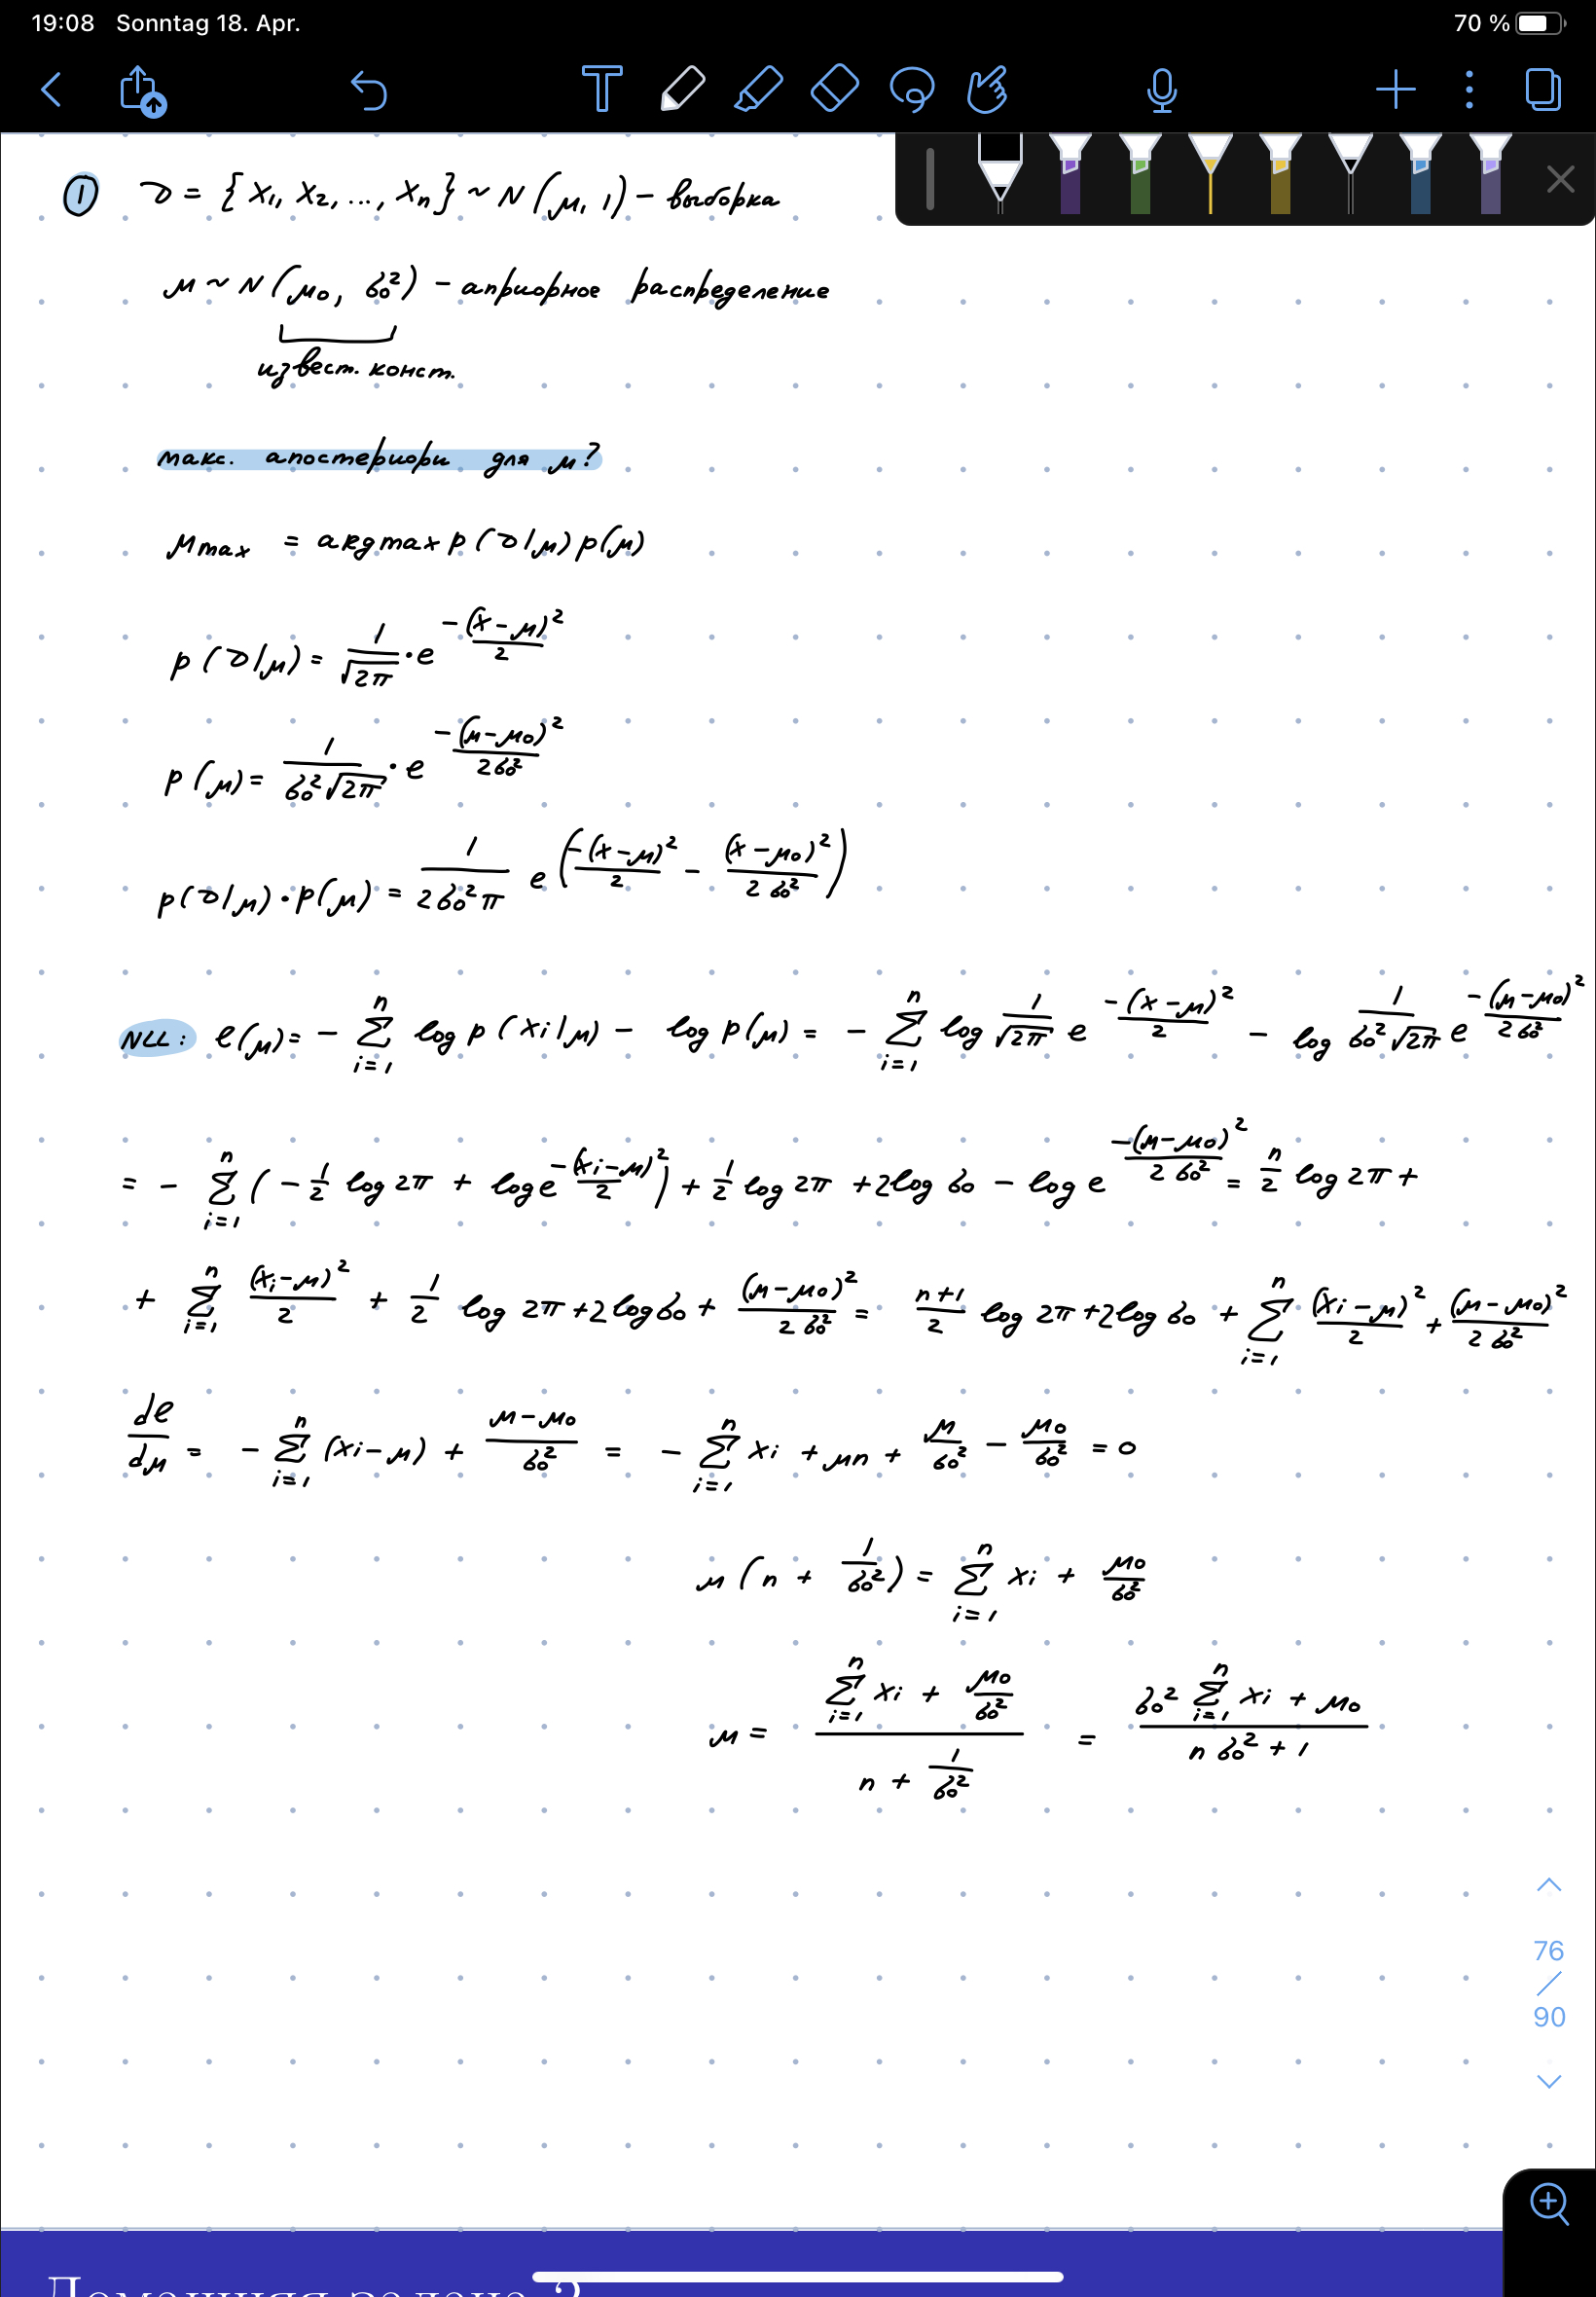 19:08 Sonntag 18. Apr.
70 %
① D = {x₁, x₂, ..., xₙ} ~ N(μ, 1) – выборка
μ ~ N(μ₀, σ₀²) – априорное распределение
извест. конст.
макс. апостериори для μ?
μ_max = argmax p(D|μ) p(μ)
p(D|μ) = 1/√(2π) · e^(-(x-μ)²/2)
p(μ) = 1/(σ₀²√(2π)) · e^(-(μ-μ₀)²/(2σ₀²))
p(D|μ) · p(μ) = 1/(2σ₀²π) e^(-(x-μ)²/2 - (x-μ₀)²/(2σ₀²))
NLL: ℓ(μ) = - Σ_{i=1}^{n} log p(xᵢ|μ) - log p(μ) = - Σ_{i=1}^{n} log 1/√(2π) e^(-(x-μ)²/2) - log 1/(σ₀²√(2π)) e^(-(μ-μ₀)²/(2σ₀²))
= - Σ_{i=1}^{n} (-1/2 log 2π + log e^(-(xᵢ-μ)²/2)) + 1/2 log 2π + 2 log σ₀ - log e^(-(μ-μ₀)²/(2σ₀²)) = n/2 log 2π +
+ Σ_{i=1}^{n} (xᵢ-μ)²/2 + 1/2 log 2π + 2 log σ₀ + (μ-μ₀)²/(2σ₀²) = (n+1)/2 log 2π + 2 log σ₀ + Σ_{i=1}^{n} (xᵢ-μ)²/2 + (μ-μ₀)²/(2σ₀²)
dℓ/dμ = - Σ_{i=1}^{n} (xᵢ-μ) + (μ-μ₀)/σ₀² = - Σ_{i=1}^{n} xᵢ + μn + μ/σ₀² - μ₀/σ₀² = 0
μ(n + 1/σ₀²) = Σ_{i=1}^{n} xᵢ + μ₀/σ₀²
μ = (Σ_{i=1}^{n} xᵢ + μ₀/σ₀²)/(n + 1/σ₀²) = (σ₀² Σ_{i=1}^{n} xᵢ + μ₀)/(nσ₀² + 1)
76
/
90
Домашняя задача 2